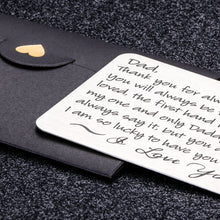 Dad,
thank you for a
you will always be
loved, the first hand
my one and only Dad
always say it but you
I am so lucky to have yo
I Love Yo